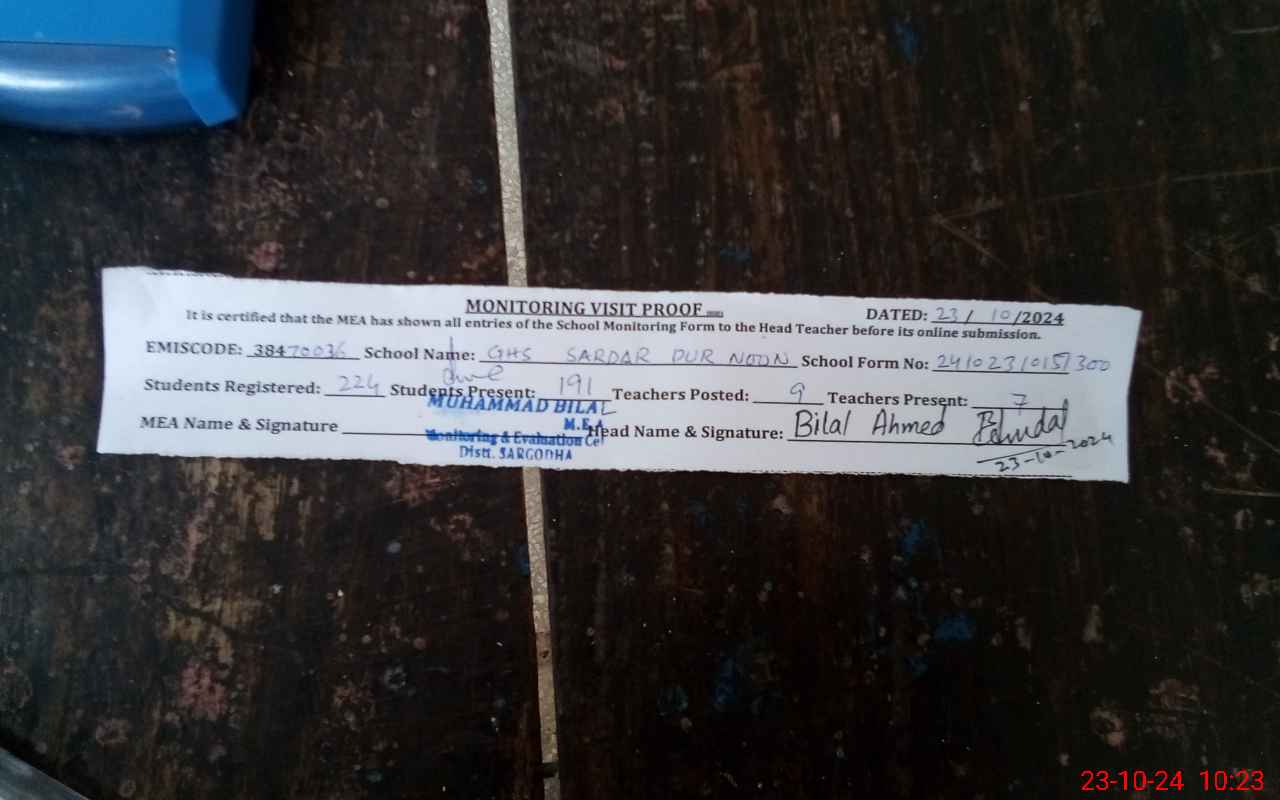 MONITORING VISIT PROOF
DATED: 23/ 10/2024
It is certified that the MEA has shown all entries of the School Monitoring Form to the Head Teacher before its online submission.
EMISCODE: 38470036 School Name: GHS SARDAR PUR NOON School Form No: 24102310151300
Students Registered: 224 Students Present: 191 Teachers Posted: 9 Teachers Present: 7
MUHAMMAD BILAL
M.E.A
MEA Name & Signature Head Name & Signature: Bilal Ahmed
Monitoring & Evaluation Cel
Distt. SARGODHA
23-10-2024
23-10-24 10:23